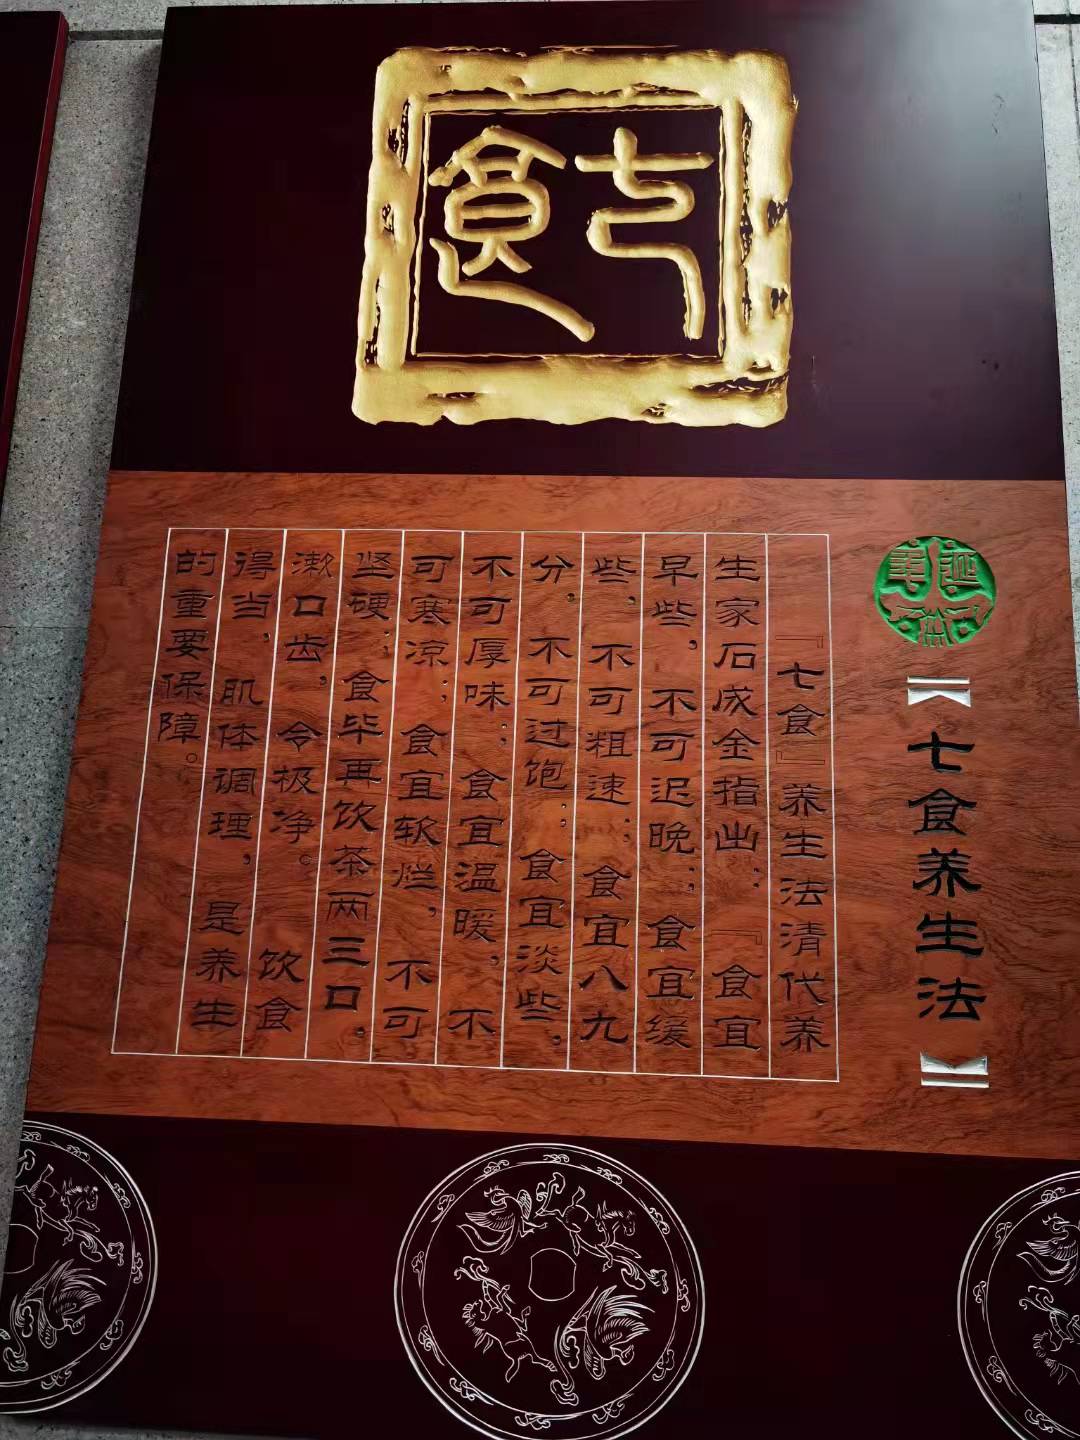 七食
七食养生法
『七食』养生法清代养
生家石成金指出：『食宜
早些，不可迟晚；食宜缓
些，不可粗速；食宜八九
分，不可过饱；食宜淡些，
不可厚味；食宜温暖，不
可寒凉；食宜软烂，不可
坚硬；食毕再饮茶两三口，
漱口齿，令极净。饮食
得当，肌体调理，是养生
的重要保障。